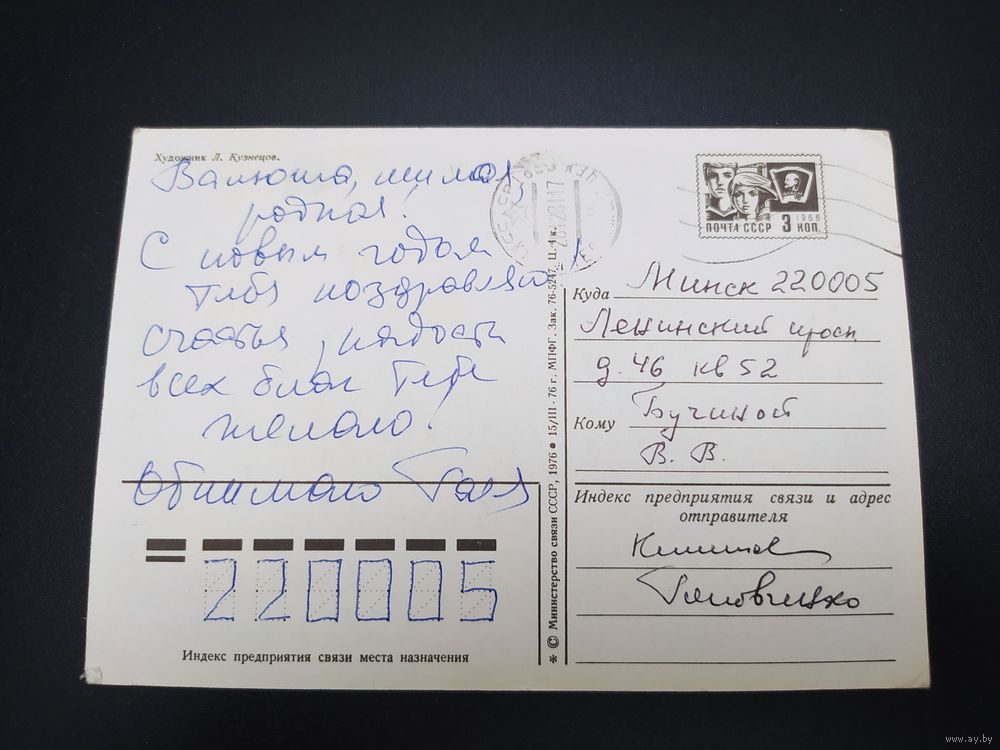 Художник Л. Кузнецов.
Валюша, милая,
родная!
С новым годом
тебя поздравляю!
Счастья, радости
всех благ тебе
желаю!
Обнимаю Галя
220005
Индекс предприятия связи места назначения
* © Министерство связи СССР, 1976 ● 15/III - 76 г. МПФГ. Зак. 76-5247. Ц. 4 к.
ПОЧТА СССР 3 КОП.
1966
ВЛКСМ
Куда Минск 220005
Ленинский просп.
д. 46 кв 52
Кому Бучиной
В. В.
Индекс предприятия связи и адрес
отправителя
www.ay.by